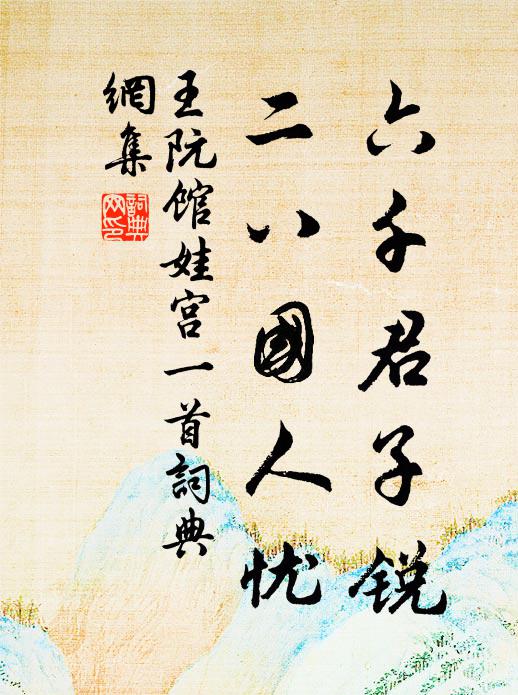 六千君子锐
二八國人忧
王阮馆娃宫一首詞典
網集
詞典
网印